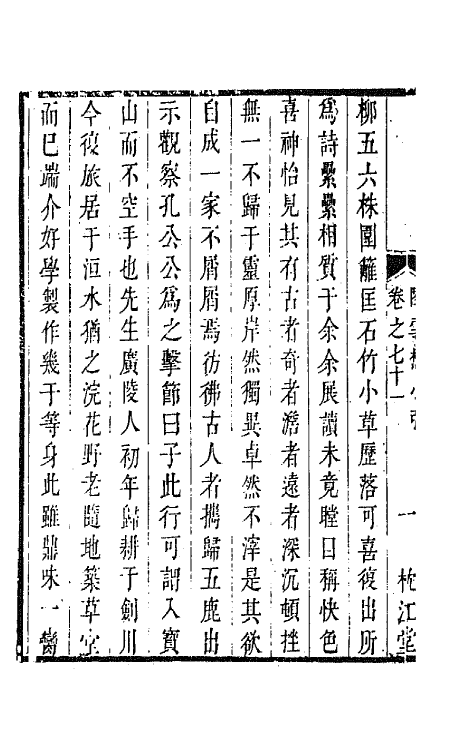 柳五六株圍籬匡石竹小草歷落可喜復出所
爲詩纍纍相質于余余展讀未竟瞠目稱快色
喜神怡見其有古者奇者澹者遠者深沉頓挫
無一不歸于靈厚岸然獨異卓然不滓是其欲
自成一家不屑屑焉彷彿古人者攜歸五鹿出
示觀察孔公公爲之擊節曰子此行可謂入寶
山而不空手也先生廣陵人初年歸耕于劍川
今復旅居于洹水猶之浣花野老隨地築草堂
而已端介好學製作幾于等身此雖鼎味一臠
卷之七十一
一
柁江堂